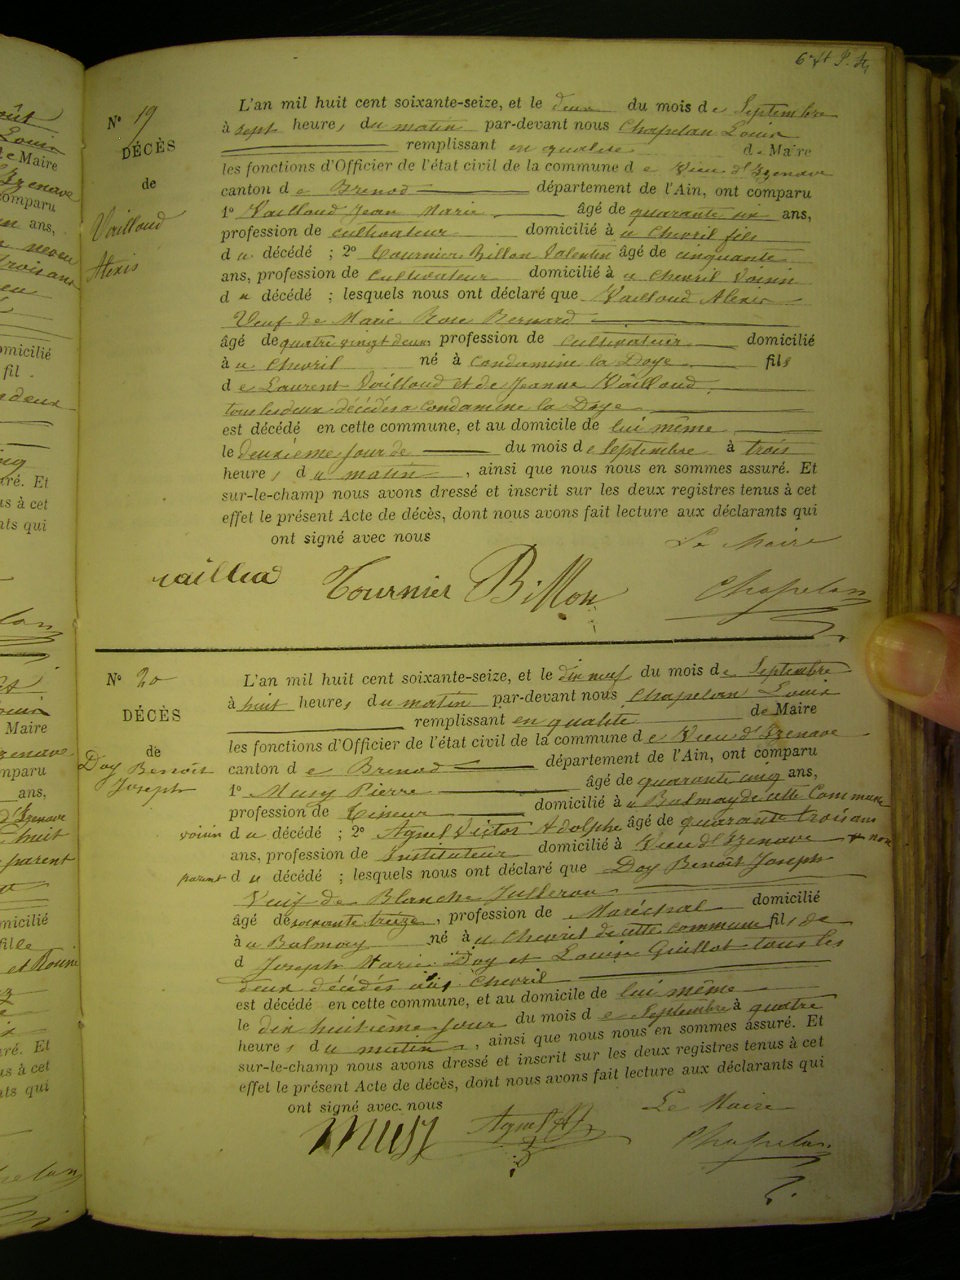 Nº 19
DÉCÈS
de
Vailloud
Alexis
L'an mil huit cent soixante-seize, et le deux du mois de Septembre
à sept heures du matin par-devant nous Chapelan Louis
remplissant en qualité de Maire
les fonctions d'Officier de l'état civil de la commune de Vieu d'Izenave
canton de Brenod département de l'Ain, ont comparu
1º Vailloud Jean Marie âgé de quarante six ans,
profession de cultivateur domicilié à a Chevril fils
du décédé ; 2º Tournier Billon Valentin âgé de cinquante
ans, profession de Cultivateur domicilié à a Chevril Voisin
du décédé ; lesquels nous ont déclaré que Vailloud Alexis
Veuf de Marie Rose Bernard
âgé de quatre vingt deux profession de Cultivateur domicilié
à a Chevril né à Condamine la Doye fils
de Laurent Vailloud et de Jeanne Vailloud
tous les deux décédés a Condamine la Doye
est décédé en cette commune, et au domicile de lui même
le deuxième jour de du mois de Septembre à trois
heures du matin, ainsi que nous nous en sommes assuré. Et
sur-le-champ nous avons dressé et inscrit sur les deux registres tenus à cet
effet le présent Acte de décès, dont nous avons fait lecture aux déclarants qui
ont signé avec nous Le Maire
Tournier Billon Chapelan
Nº 20
DÉCÈS
de
Doy Benoit
Joseph
L'an mil huit cent soixante-seize, et le dix neuf du mois de Septembre
à huit heures du matin par-devant nous Chapelan Louis
remplissant en qualité de Maire
les fonctions d'Officier de l'état civil de la commune de Vieu d'Izenave
canton de Brenod département de l'Ain, ont comparu
1º Musy Pierre âgé de quarante cinq ans,
profession de domicilié à a Balmay de cette Commune
voisin du décédé ; 2º Agnel Victor Adolphe âgé de quarante trois ans
ans, profession de Instituteur domicilié à Vieu d'Izenave + non
parent du décédé ; lesquels nous ont déclaré que Doy Benoît Joseph
Veuf de Blanche Julleron
âgé de soixante treize, profession de Maréchal domicilié
à a Balmay né à a Chevril de cette commune fils de
d Joseph Marie Doy et Louise Guillot tous les
deux décédés Chevril
est décédé en cette commune, et au domicile de lui même
le dix huitième jour du mois de Septembre à quatre
heures du matin, ainsi que nous nous en sommes assuré. Et
sur-le-champ nous avons dressé et inscrit sur les deux registres tenus à cet
effet le présent Acte de décès, dont nous avons fait lecture aux déclarants qui
ont signé avec nous Le Maire
Musy Agnel Chapelan